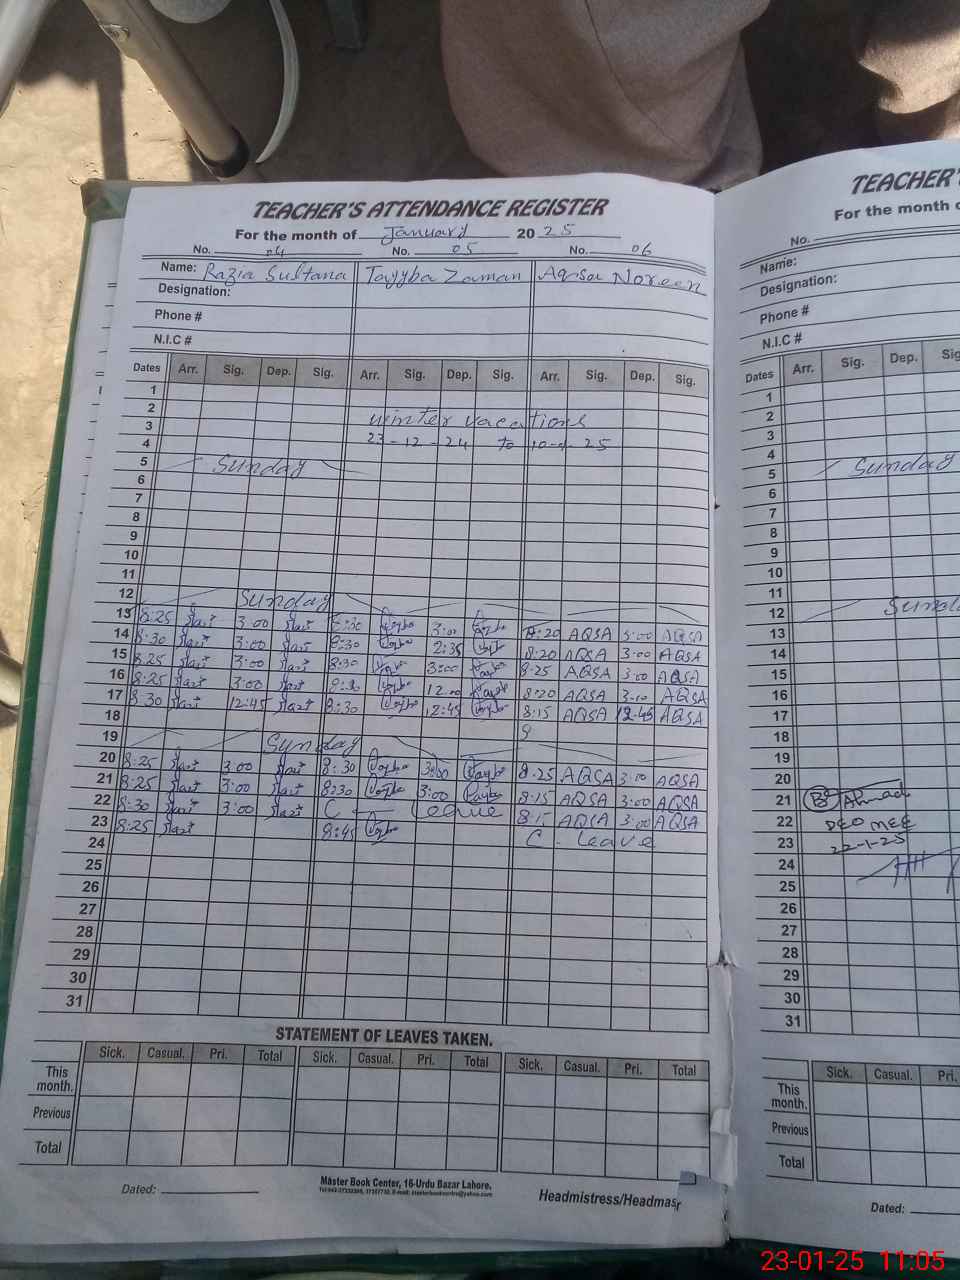 TEACHER'S ATTENDANCE REGISTER
For the month of January 2025
No. 04 No. 05 No. 06
Name: Razia Sultana Tayyba Zaman Aqsa Noreen
Designation:
Phone #
N.I.C #
Dates Arr. Sig. Dep. Sig. Arr. Sig. Dep. Sig. Arr. Sig. Dep. Sig.
1
2
3 winter vacations
4 23-12-24 to 25
5 Sunday
6
7
8
9
10
11
12 Sunday
13 8:25 3:00 8:30 3:00 8:20 AQSA 3:00 AQSA
14 8:30 3:00 8:30 2:35 8:20 AQSA 3:00 AQSA
15 8:25 3:00 8:30 3:00 8:25 AQSA 3:00 AQSA
16 8:25 3:00 12:00 8:20 AQSA 3:00 AQSA
17 8:30 12:45 8:30 12:45 8:15 AQSA 12:45 AQSA
18
19 Sunday
20 8:25 3:00 8:30 3:00 8:25 AQSA 3:00 AQSA
21 8:25 3:00 8:30 3:00 8:15 AQSA 3:00 AQSA
22 8:30 3:00 C - leave 8:15 AQSA 3:00 AQSA
23 8:25 8:45 C. leave
24
25
26
27
28
29
30
31
STATEMENT OF LEAVES TAKEN.
Sick. Casual. Pri. Total Sick. Casual. Pri. Total Sick. Casual. Pri. Total
This month.
Previous
Total
Dated:
Master Book Center, 16-Urdu Bazar Lahore.
Headmistress/Headmas
TEACHER'S
For the month
No.
Name:
Designation:
Phone #
N.I.C #
Dates Arr. Sig. Dep. Sig
1
2
3
4
5 Sunday
6
7
8
9
10
11
12 Sunda
13
14
15
16
17
18
19
20
21 Ahmad
22 DEO MEE
23 22-1-25
24
25
26
27
28
29
30
31
Sick. Casual. Pri.
This month.
Previous
Total
Dated:
23-01-25 11:05